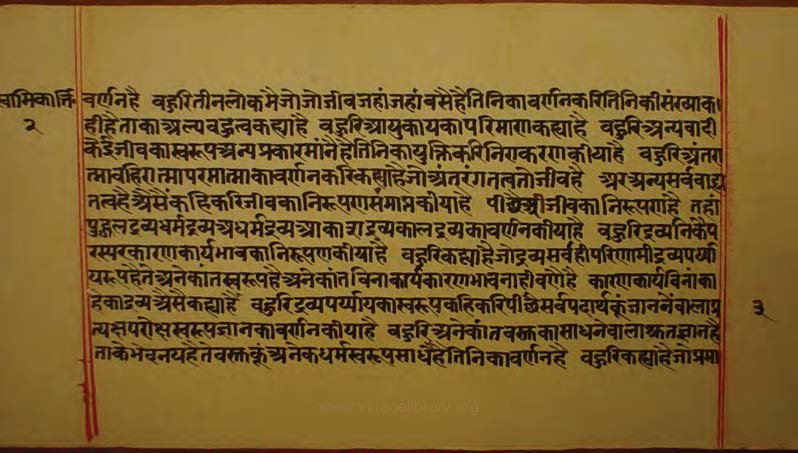 स्वामिकार्त्ति॰
२
वर्णन है वहुरि तीन लोकमै जो जो जीव जहां जहां वसै है तिनिका वर्णन करि तिनिकी संख्या क
ही है ताका अल्पवहुत्व कह्या है वहुरि आयुकायका परिमाण कह्या है वहुरि अन्यवादी
केई जीवका स्वरूप अन्य प्रकार मांनै है तिनिका युक्ति करि निराकरण कीया है वहुरि अंतरा
त्मा वहिरात्मा परमात्मा का वर्णन करि कह्या है जो अंतरंग तत्व तो जीव है अर अन्य सर्व वाह्य
तत्व है अैसैं कहि करि जीवका निरूपण समाप्त कीया है पीछै अजीवका निरूपण है तहां
पुद्गलद्रव्य धर्मद्रव्य अधर्मद्रव्य आकाशद्रव्य कालद्रव्य का वर्णन कीया है वहुरि द्रव्यनिकै प
रस्पर कारणकार्यभावका निरूपण कीया है वहुरि कह्या है जो द्रव्य सर्व ही परिणामी द्रव्यपर्य्या
यरूप है ते अनेकांतस्वरूप है अनेकांत विना कार्यकारणभाव नाही वणै है कारणकार्य विनां का
हेका द्रव्य अैसै कह्या है वहुरि द्रव्यपर्य्यायका स्वरूप कहि करि पीछै सर्व पदार्थकूं जाननेंवाला प्र
त्यक्ष परोक्ष स्वरूप ज्ञानका वर्णन कीया है वहुरि अनेकांत वस्तुका साधनेवाला श्रुतज्ञान है
ताके भेद नय है ते वस्तुकूं अनेक धर्मस्वरूप साधै है तिनिका वर्णन है वहुरि कह्या है जो प्रमा
३
www.vitragelibrary.org